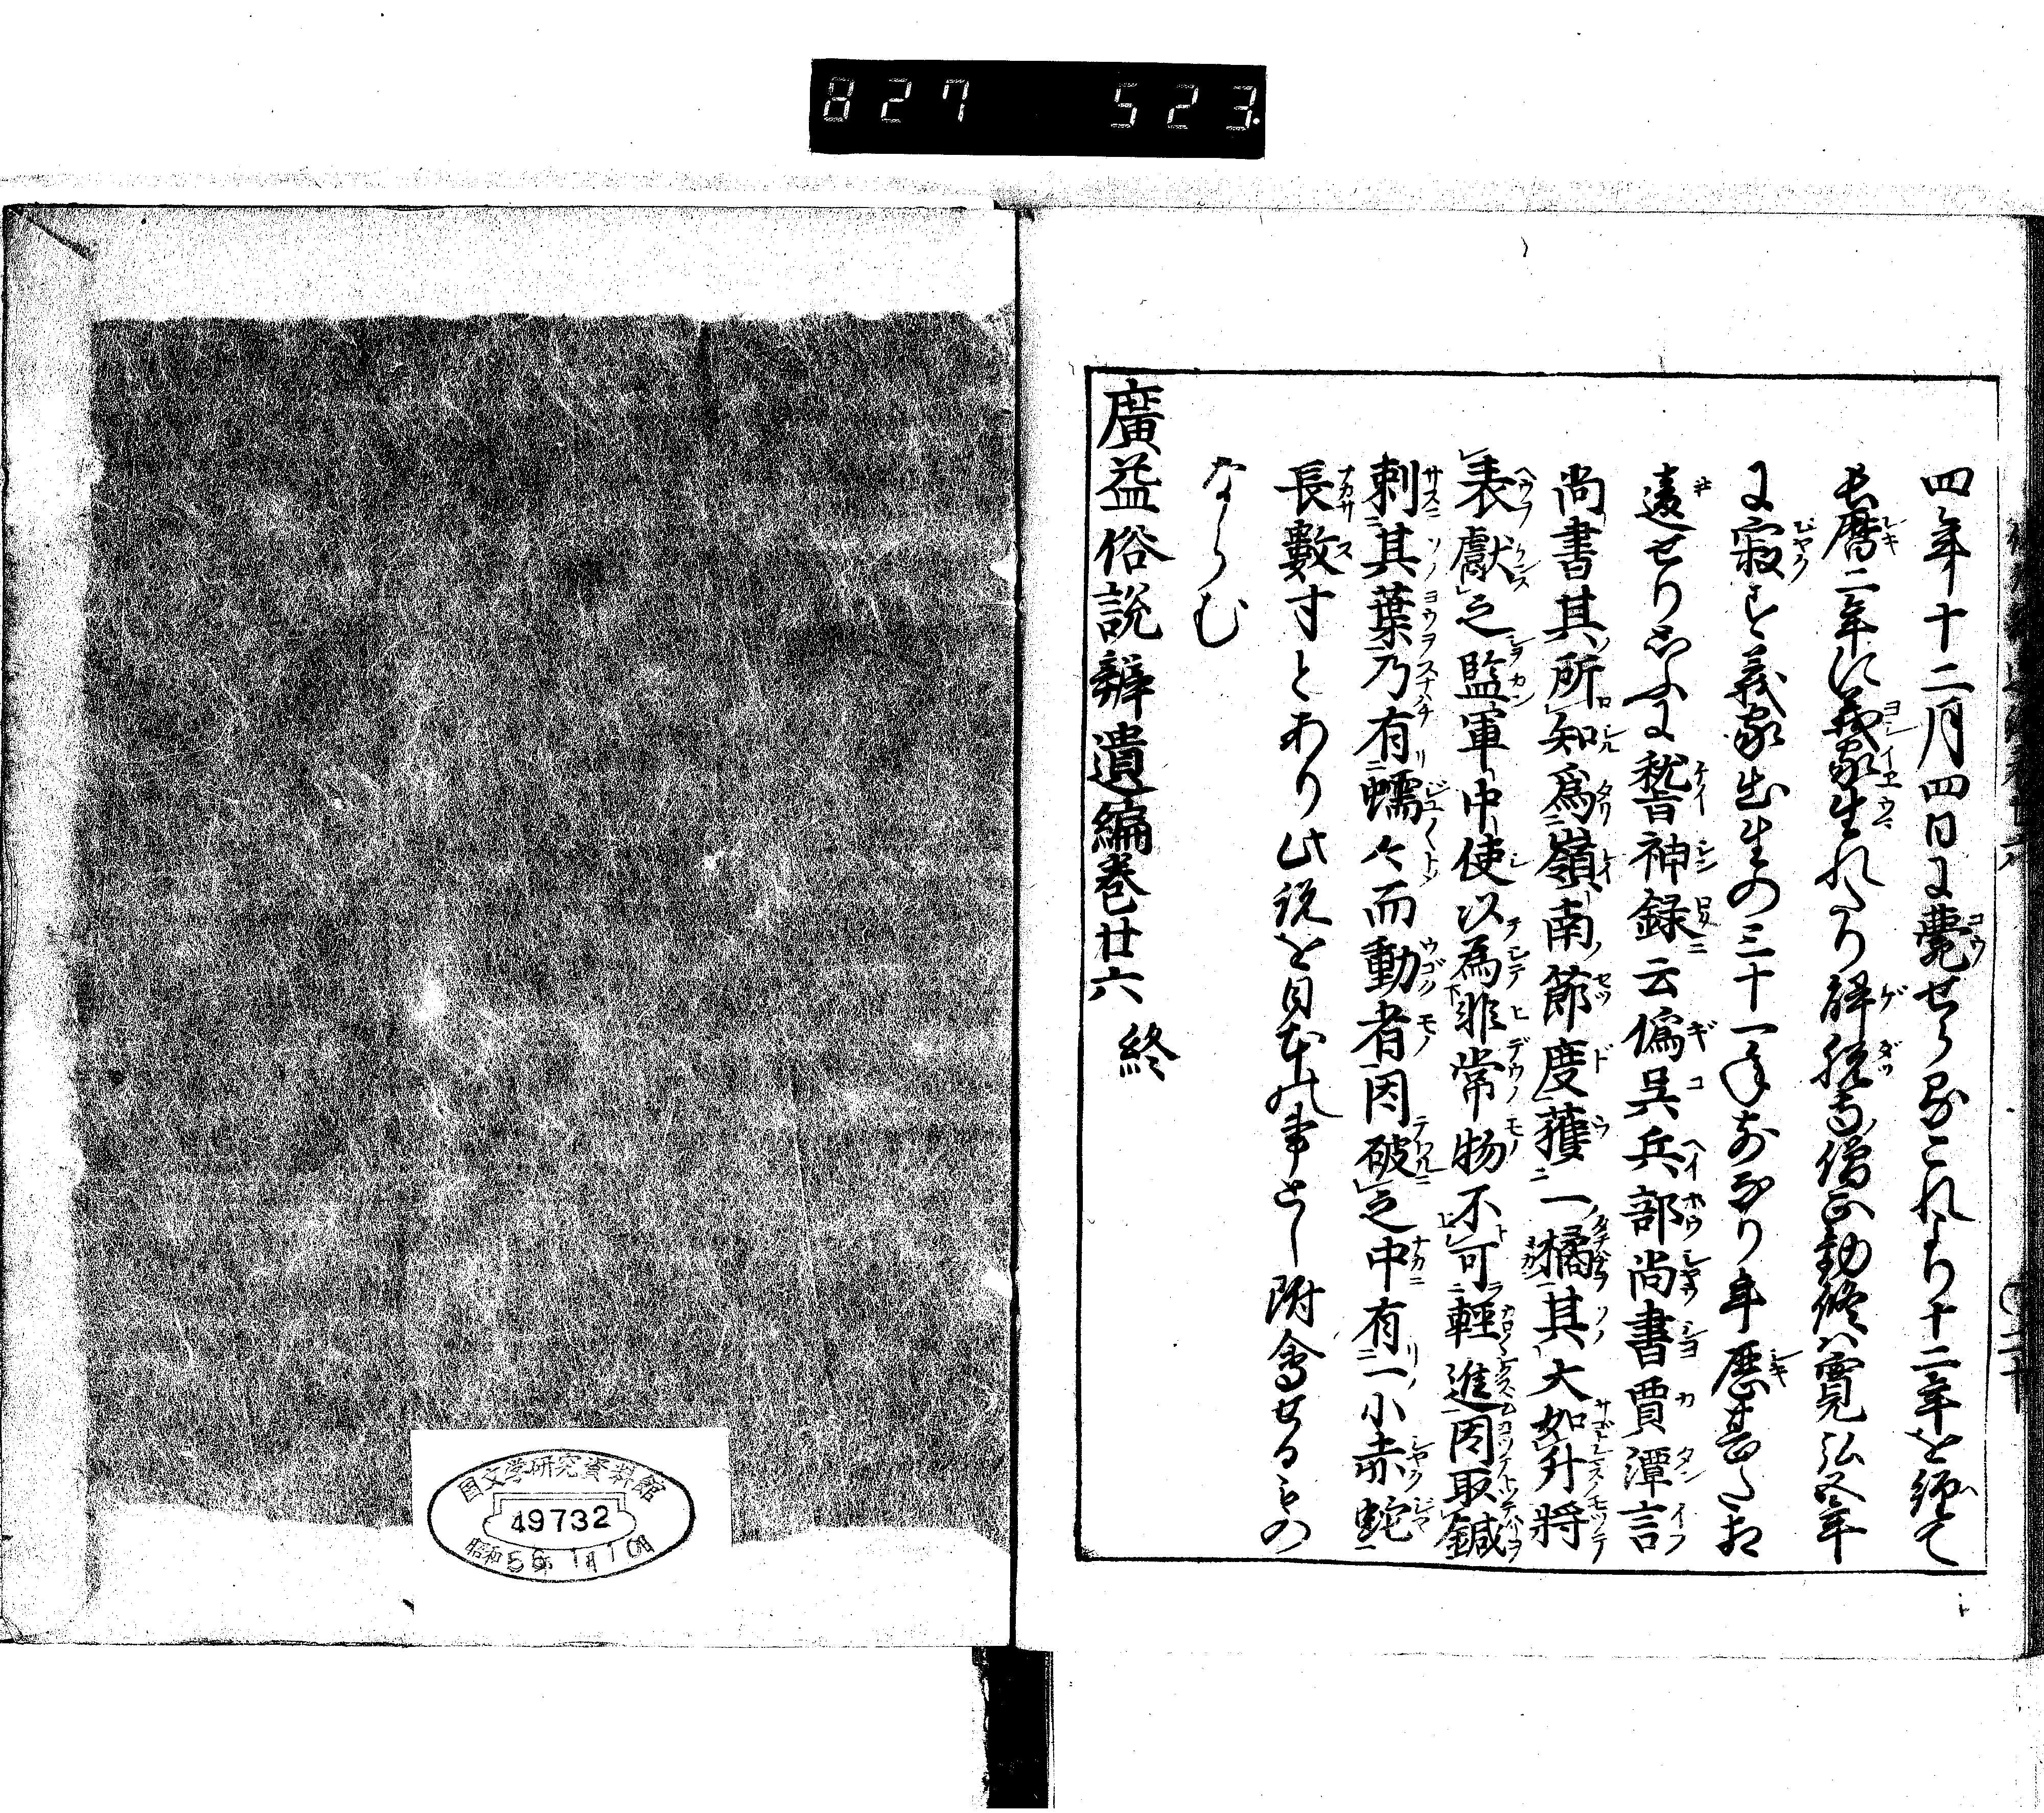 827 523
四年十二月四日に薨せらるこれより十二年を經て
長暦二年に義家生れたり解脱寺僧正勸修ハ寛弘五年
に寂す義家出生の三十一年前なり年歴甚た相
違せり按ふに稽神録云僞呉兵部尚書賈潭言
尚書其所知爲嶺南節度獲一橘其大如升將
表獻之監軍中使以爲非常物不可輕進因取鍼
刺其葉乃有蠕々而動者因破之中有一小赤蛇
長數寸とあり此説を日本の事とし附會せるもの
ならむ
廣益俗説辨遺編巻廿六 終
国文学研究資料館
49732
昭和56年1月10日